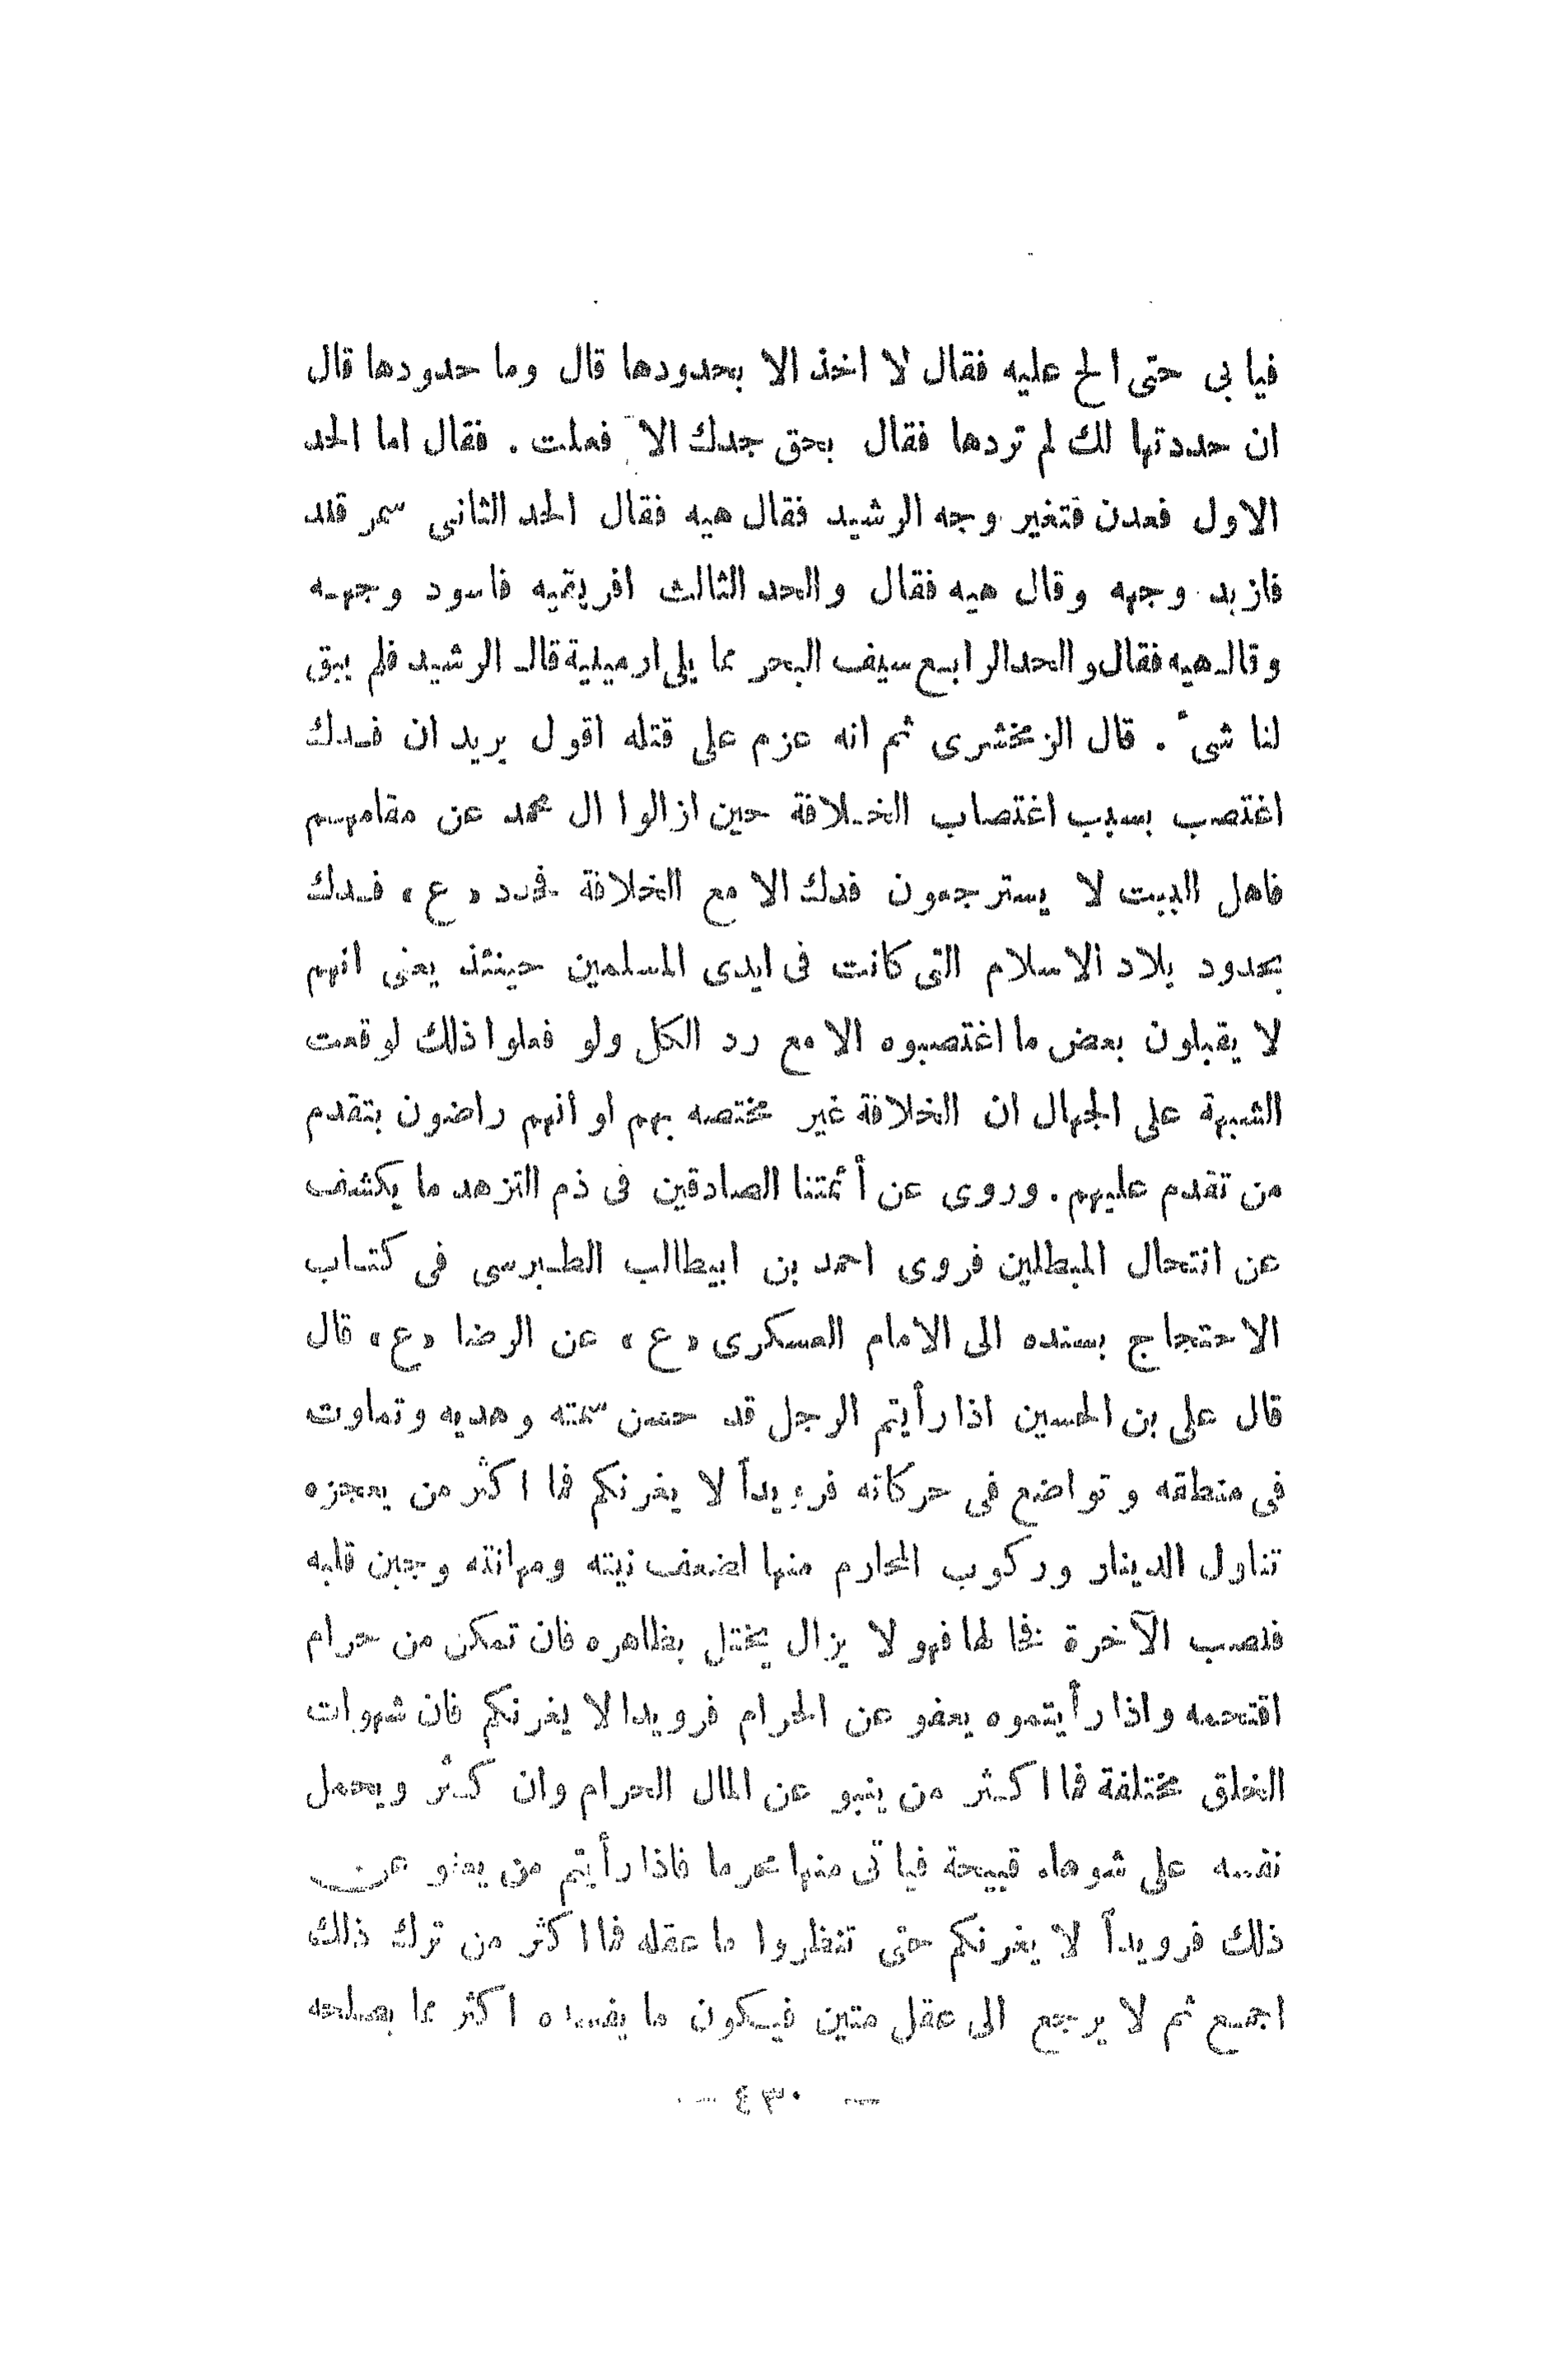 فيا بى حتى الح عليه فقال لا اخذ الا بحدودها قال وما حدودها قال
ان حددتها لك لم تردها فقال بحق جدك الا فعلت . فقال اما الحد
الاول فعدن فتغير وجه الرشيد فقال هيه فقال الحد الثانى سمر قند
فازبد وجهه وقال هيه فقال والحد الثالث افريقيه فاسود وجهه
وقال هيه فقال والحد الرابع سيف البحر مما يلى ارمينية قال الرشيد فلم يبق
لنا شىء . قال الزمخشرى ثم انه عزم على قتله اقول يريد ان فدك
اغتصب بسبب اغتصاب الخلافة حين ازالوا ال محمد عن مقامهم
فاهل البيت لا يسترجعون فدك الا مع الخلافة فحدد « ع » فدك
بحدود بلاد الاسلام التى كانت فى ايدى المسلمين حينئذ يعنى انهم
لا يقبلون بعض ما اغتصبوه الا مع رد الكل ولو فعلوا ذلك لوقعت
الشبهة على الجهال ان الخلافة غير مختصه بهم او انهم راضون بتقدم
من تقدم عليهم . وروى عن أئمتنا الصادقين فى ذم التزهد ما يكشف
عن انتحال المبطلين فروى احمد بن ابيطالب الطبرسى فى كتاب
الاحتجاج بسنده الى الامام العسكرى « ع » عن الرضا « ع » قال
قال على بن الحسين اذا رأيتم الرجل قد حسن سمته وهديه وتماوت
فى منطقه وتواضع فى حركاته فرويداً لا يغرنكم فما اكثر من يعجزه
تناول الدينار وركوب المحارم منها لضعف نيته ومهانته وجبن قلبه
فنصب الآخرة فخا لها فهو لا يزال يختل بظاهره فان تمكن من حرام
اقتحمه واذا رأيتموه يعفو عن الحرام فرويدا لا يغرنكم فان شهوات
الخلق مختلفة فما اكثر من ينبو عن المال الحرام وان كثر ويحمل
نفسه على شوهاء قبيحة فيا تى منها محرما فاذا رأيتم من يعفو عن
ذلك فرويداً لا يغرنكم حتى تنظروا ما عقله فما اكثر من ترك ذلك
اجمع ثم لا يرجع الى عقل متين فيكون ما يفسده اكثر مما يصلحه
— ٤٣٠ —